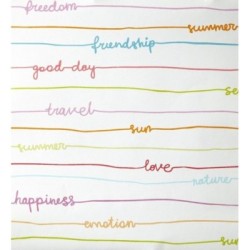 freedom
summer
friendship
good day
se
travel
sun
summer
love
nature
happiness
emotion